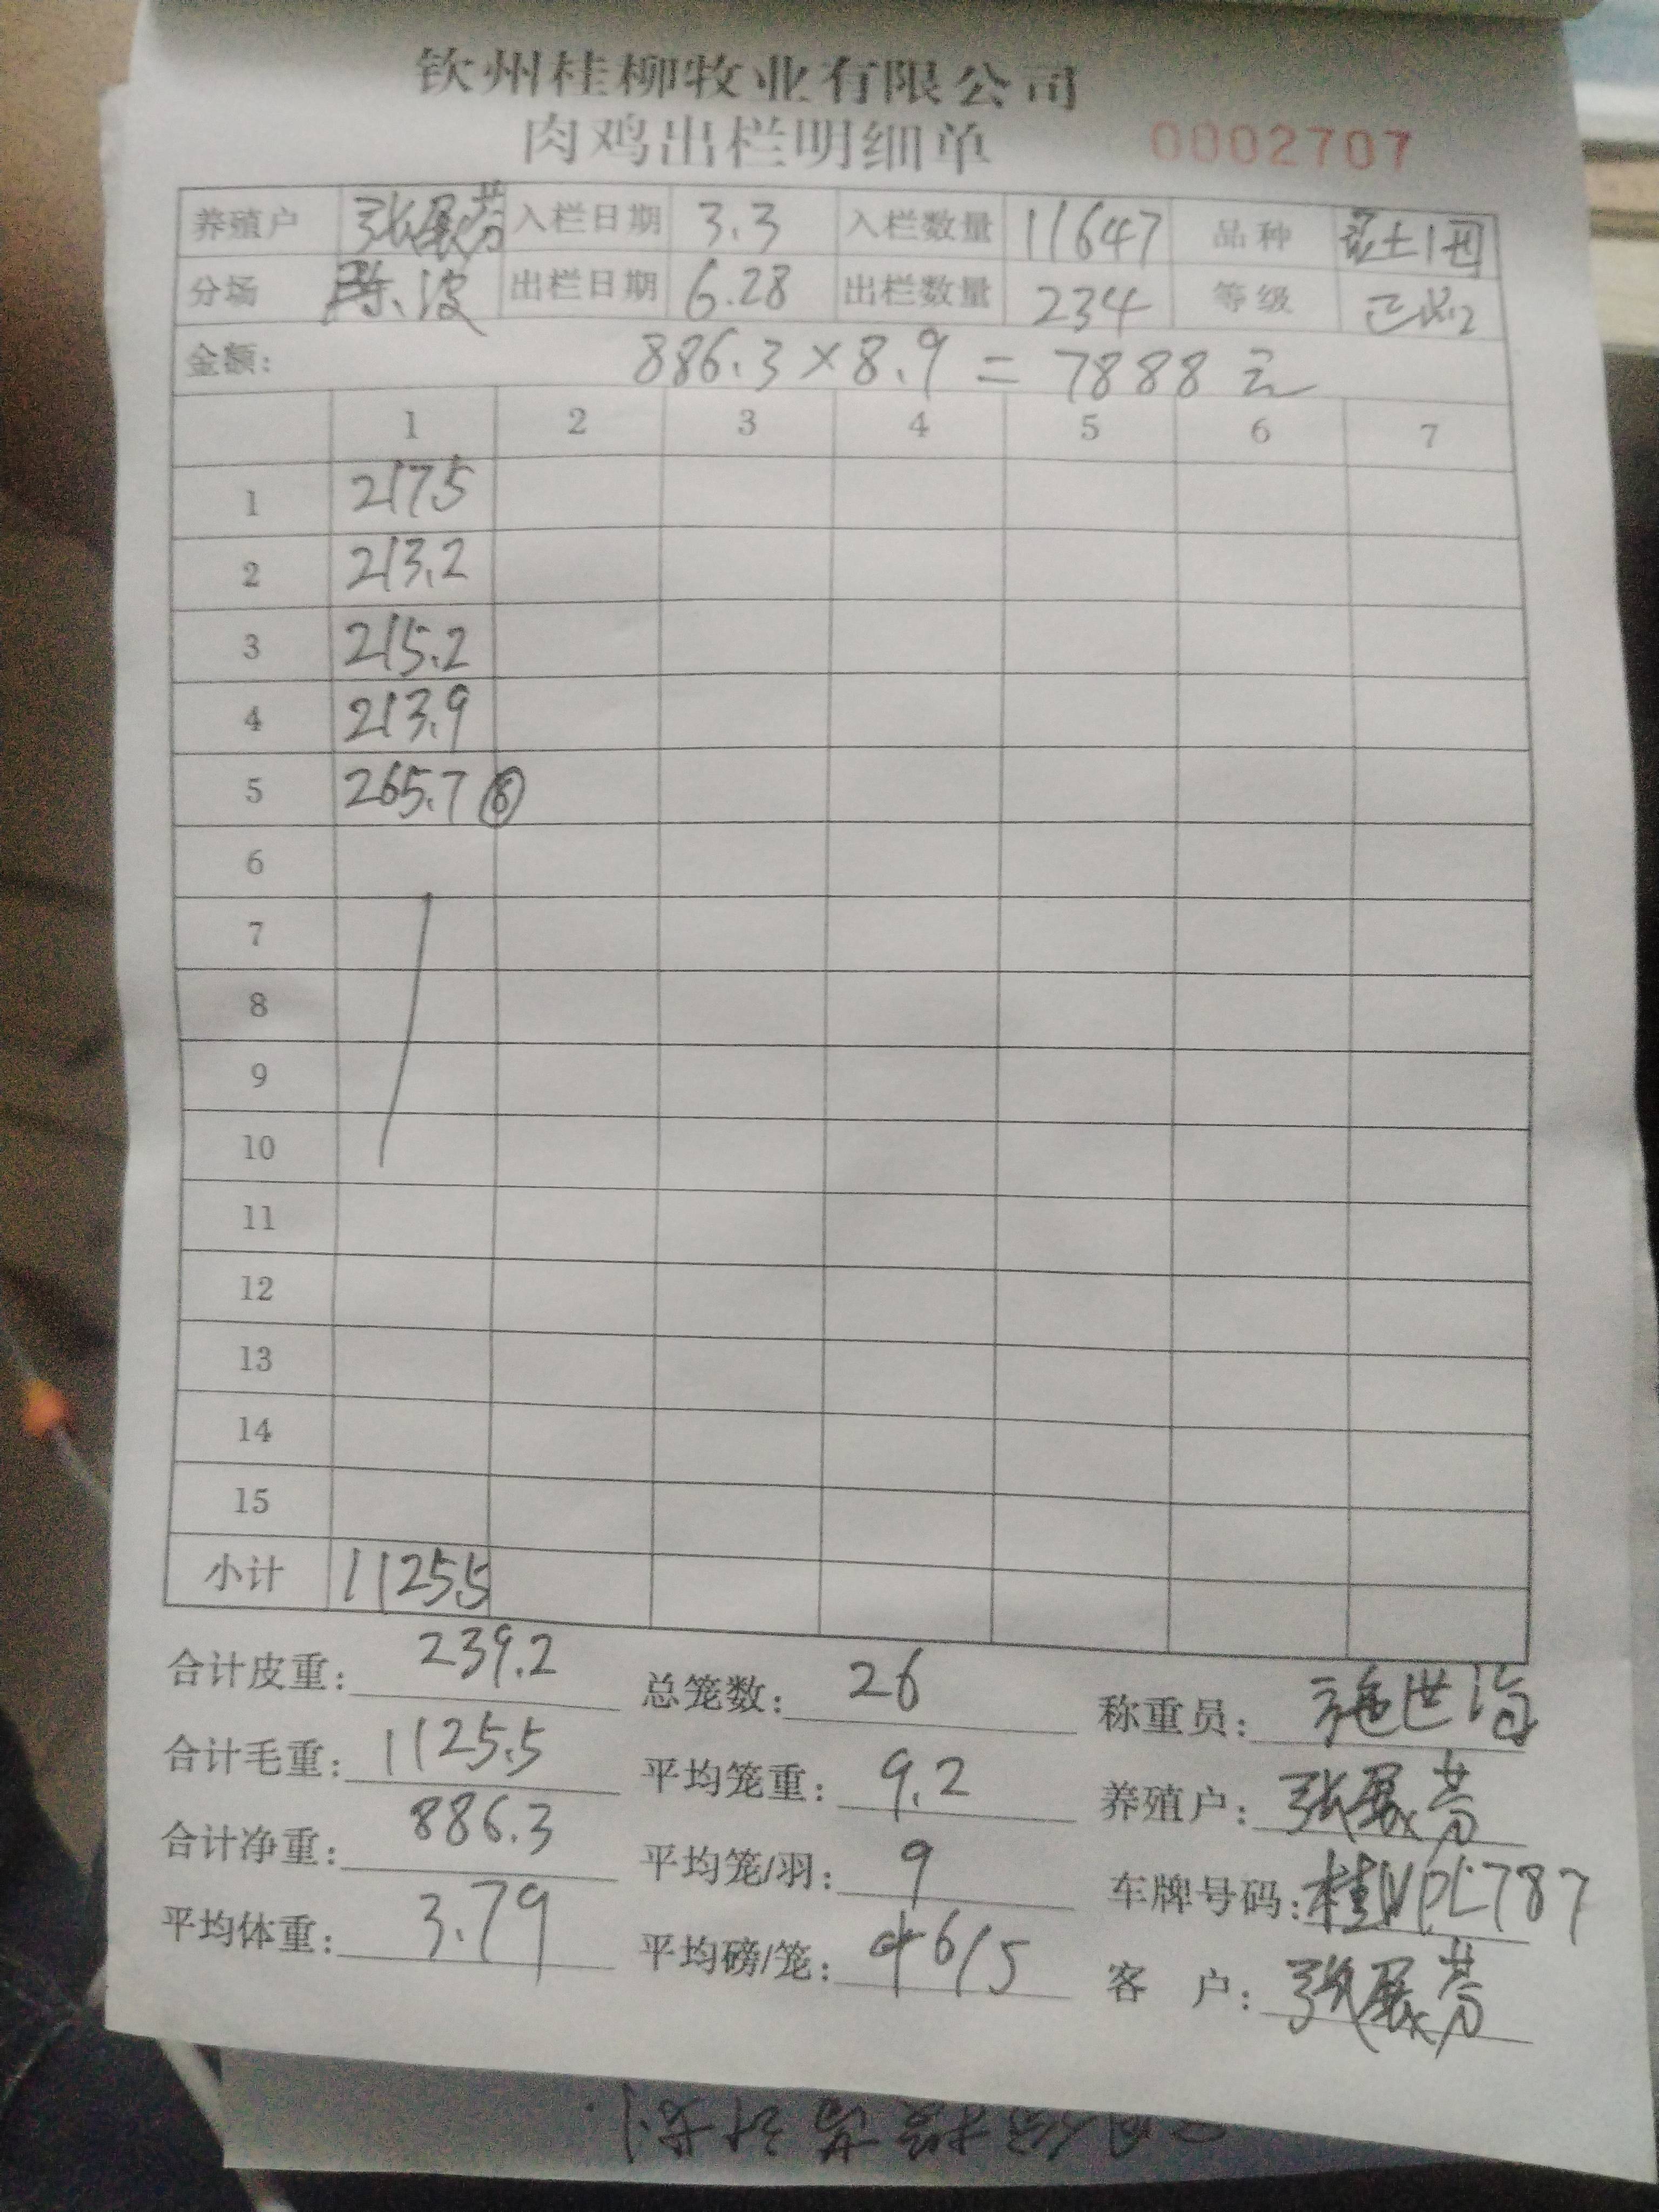 钦州桂柳牧业有限公司
肉鸡出栏明细单 0002707
养殖户 张展芬 入栏日期 3.3 入栏数量 11647 品种 土1
分场 陈波 出栏日期 6.28 出栏数量 234 等级 正
金额: 886.3×8.9=7888元
1 2 3 4 5 6 7
1 217.5
2 213.2
3 215.2
4 213.9
5 265.7 ⑥
6
7
8
9
10
11
12
13
14
15
小计 1125.5
合计皮重: 239.2 总笼数: 26 称重员: 施世海
合计毛重: 1125.5 平均笼重: 9.2 养殖户: 张展芬
合计净重: 886.3 平均笼/羽: 9 车牌号码: 桂 787
平均体重: 3.79 平均磅/笼: 46/5 客 户: 张展芬